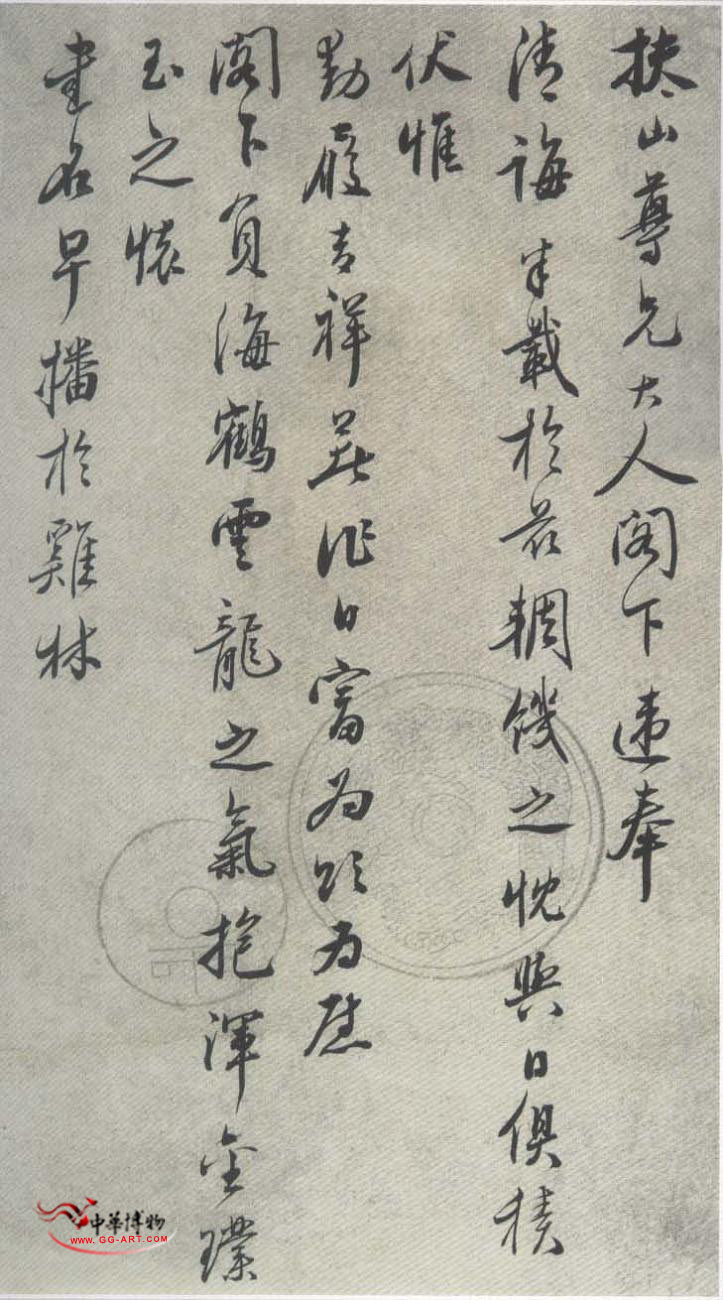 扶山尊兄大人阁下违奉
清誨半載於茲輖饑之忱與日俱積
伏惟
勛履吉祥著作日富為頌為慰
阁下負海鶴雲龍之氣抱渾金璞
玉之懷
書名早播於雞林
中華博物
WWW.GG-ART.COM